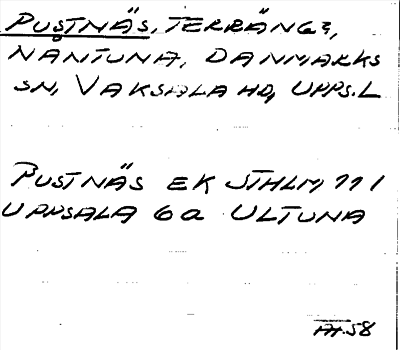 PUSTNÄS, TERRÄNG,
NANTUNA, DANMARKS
SN, VAKSALA HD, UPPS.L
PUSTNÄS EK STHLM 111
UPPSALA 6a ULTUNA
58